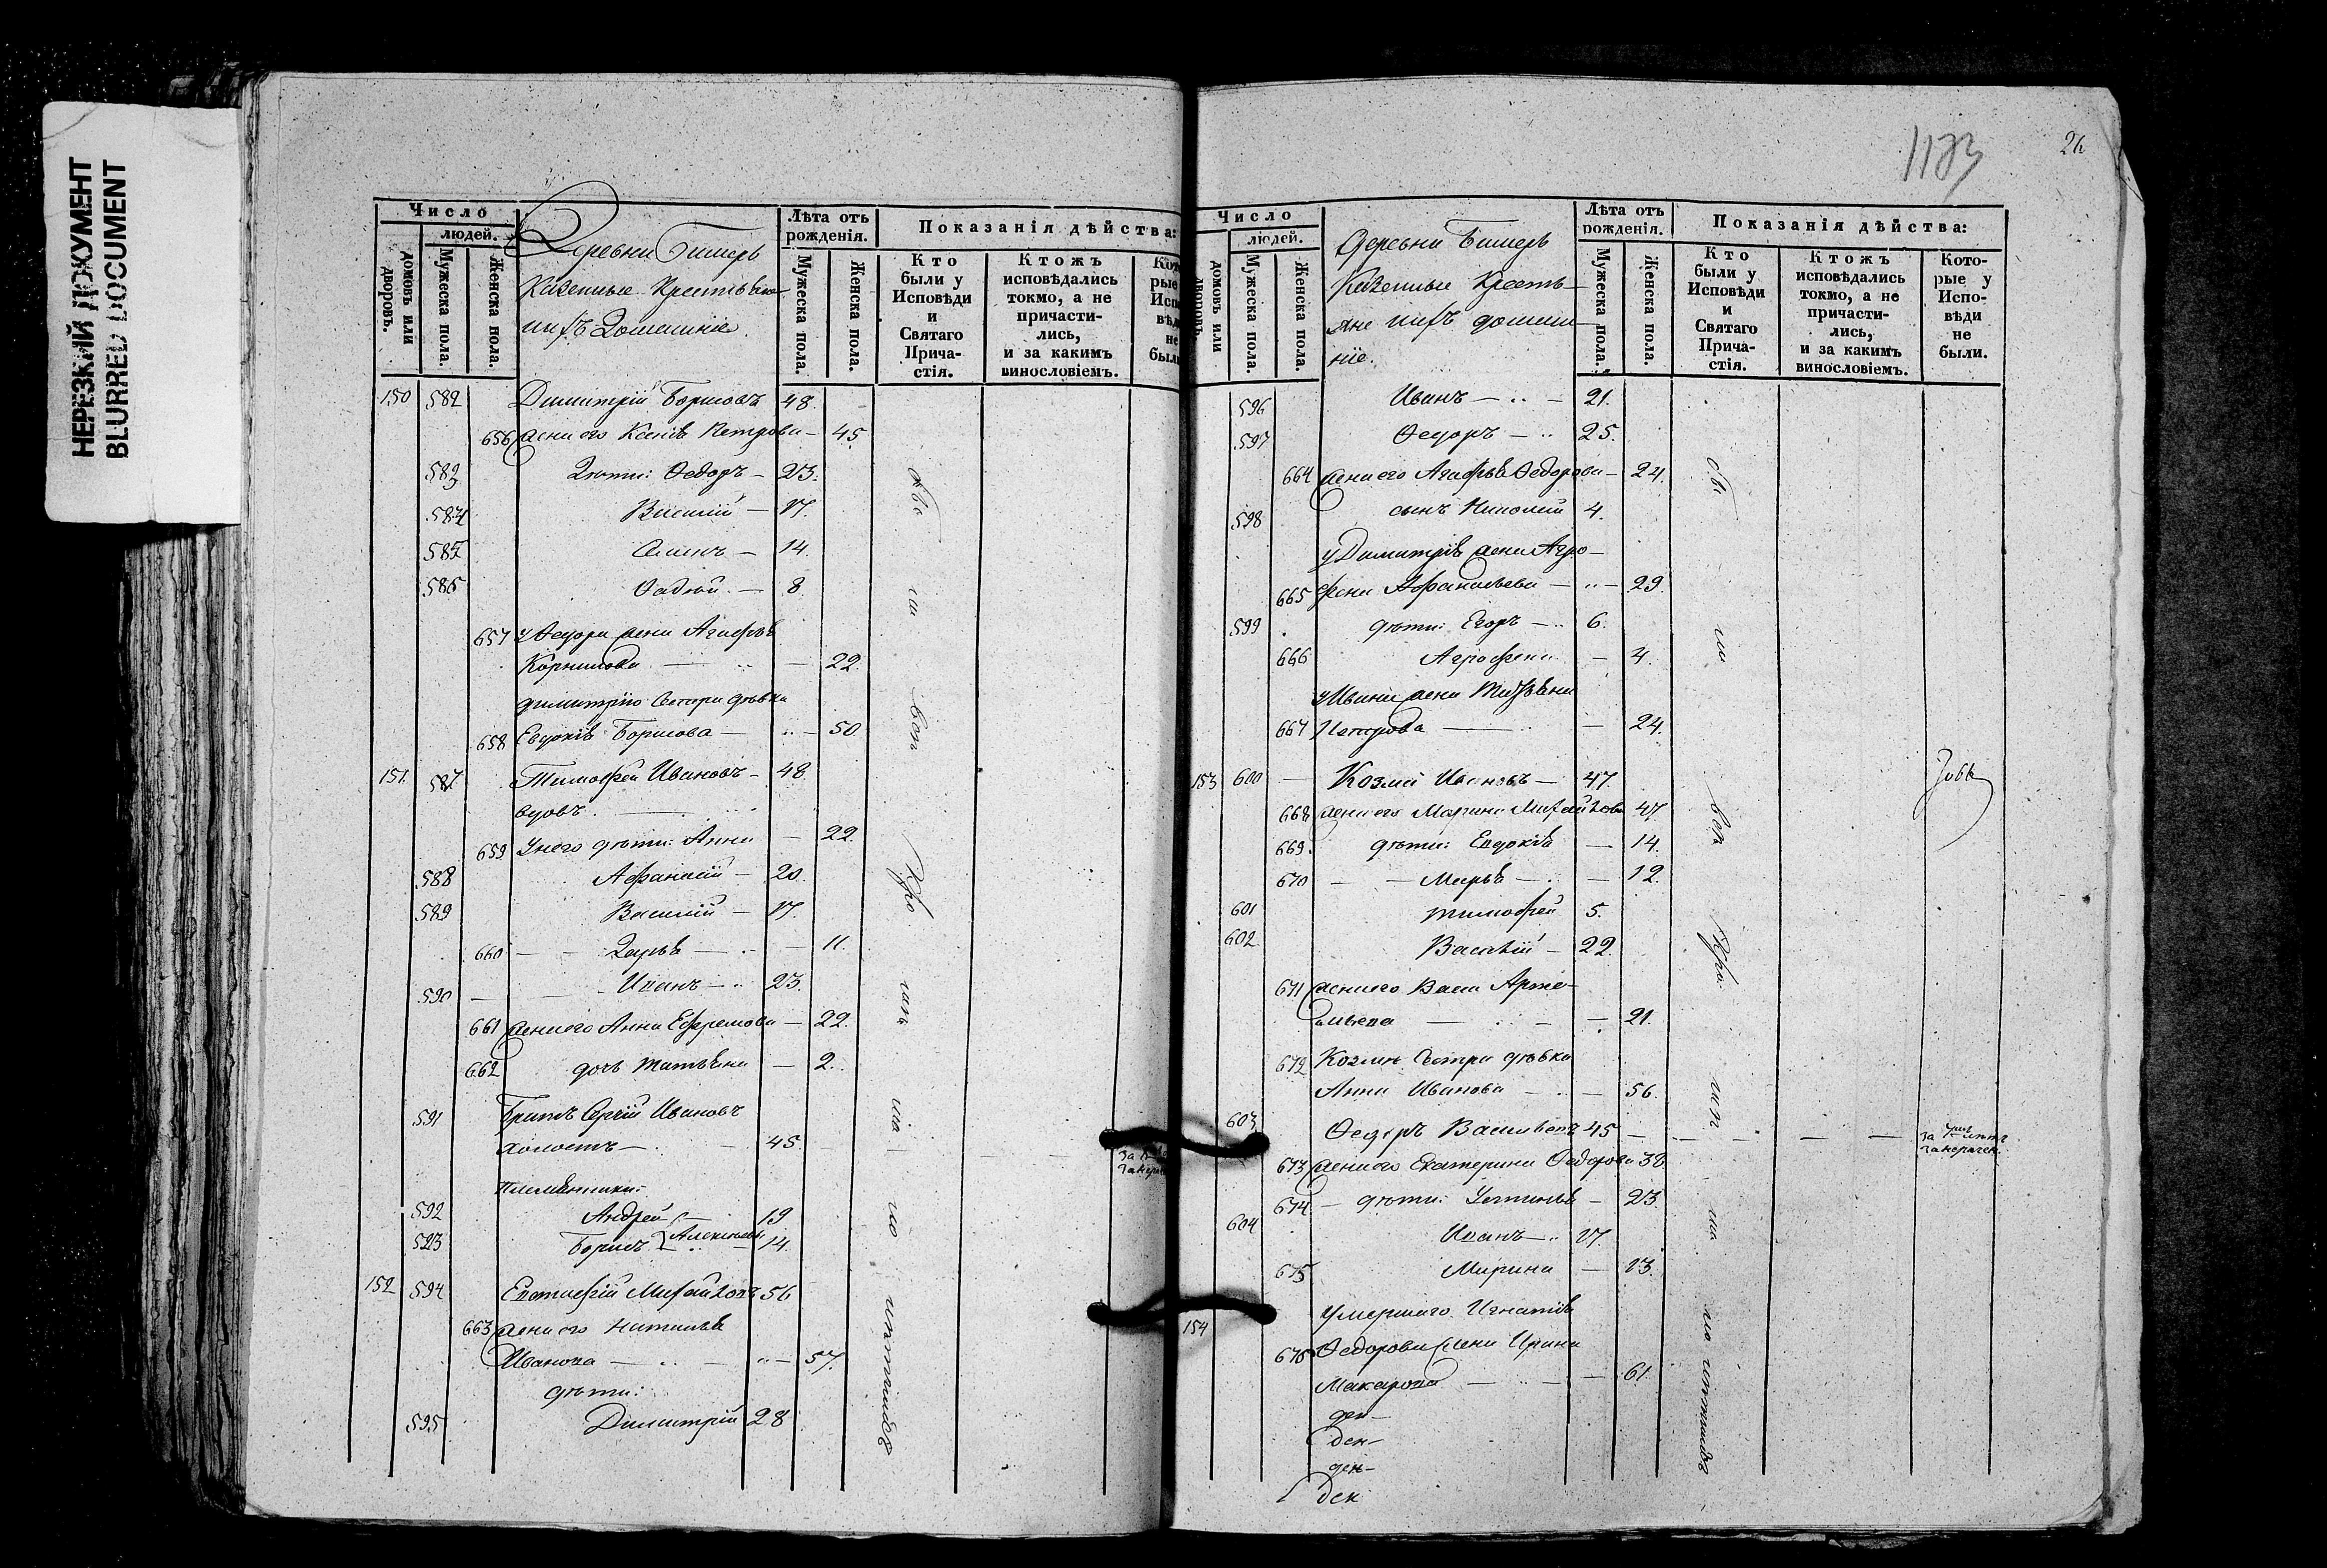 НЕРЕЗКИЙ ДОКУМЕНТ
BLURRED DOCUMENT
Число
людей.
домовъ или дворовъ.
Мужеска пола.
Женска пола.
Деревни Бимеръ
Казенные Крестьяне
ихъ Домашніе
Лѣта отъ рожденія.
Мужеска пола.
Женска пола.
Показанія дѣйства:
Кто были у Исповѣди и Святаго Прича-стія.
Ктожъ исповѣдались токмо, а не причасти-лись, и за какимъ винословіемъ.
150 582 Димитрій Борисовъ 48.
656 жена его Ксенія Петрова – 45
583 Дѣти: Ѳедоръ – 23.
584 Василій – 17.
585 Семенъ – 14.
586 Фадѣй – 8.
657 у Ѳедора жена Агафья
Корнилова – 22.
Димитрію Сестра дѣвка
658 Евдокія Борисова – 50
151. 587 Тимофей Ивановъ – 48.
вдовъ.
659 у него дѣти: Анна – 22.
588 Афанасій – 20.
589 Василій – 17.
660 Дарья – 11.
590 Иванъ – 23.
661 жена его Анна Ефремова – 22.
662 дочь Татьяна – 2.
591 Братъ Сергій Ивановъ
холостъ – 45.
Племянники:
592 Андрей – 19
593 Борисъ Алексѣевы – 14.
152 594 Евстафій Михайловъ 56
663 жена его Наталья
Иванова – 57.
дѣти:
595 Димитрій 28
1173
26
Число
людей.
домовъ или дворовъ.
Мужеска пола.
Женска пола.
Деревни Бимеръ
Казенные Кресть-
яне ихъ домаш-
ніе.
Лѣта отъ рожденія.
Мужеска пола.
Женска пола.
Показанія дѣйства:
Кто были у Исповѣди и Святаго Прича-стія.
Ктожъ исповѣдались токмо, а не причасти-лись, и за какимъ винословіемъ.
Кото-рые у Испо-вѣди не были.
596 Иванъ – 21.
597 Ѳедоръ – 25.
664 жена его Агафья Ѳедорова – 24.
598 сынъ Николай 4.
у Димитрія жена Агро-
665 фена Афанасьева – 29
599 дѣти: Егоръ – 6.
666 Аграфена – 4.
у Ивана жена Татьяна
667 Петрова – 24.
153 600 Козма Ивановъ – 47.
668 жена его Марина Михайлова 47.
669. дѣти: Евдокія – 14.
670 Марья – 12.
601 Тимофей 5.
602 Василій – 22.
671 жена его Васса Арте-
мьева – 21.
672 Козмѣ Сестра дѣвка
Анна Иванова – 56.
603 Ѳедоръ Васильевъ 45
673 жена его Екатерина Ѳедорова 38
674 дѣти: Устинья – 23.
604 Иванъ 17.
675 Марина – 13.
154 Умершаго Игнатія
676 Ѳедорова жена Ирина
Макарова – 61.
ден–
ден–
ден–
ден